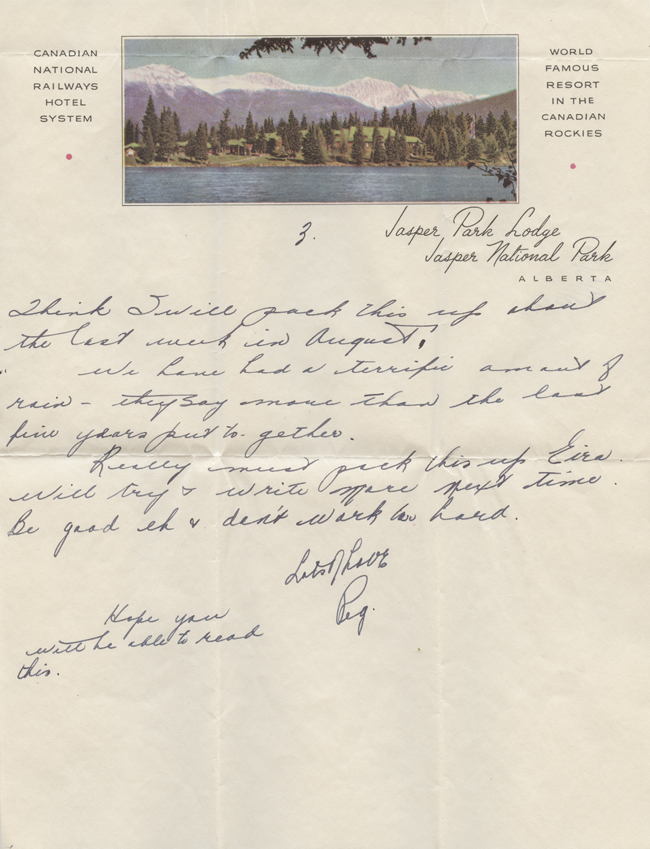 CANADIAN
NATIONAL
RAILWAYS
HOTEL
SYSTEM
WORLD
FAMOUS
RESORT
IN THE
CANADIAN
ROCKIES
3.
Jasper Park Lodge
Jasper National Park
ALBERTA
Think I will pack this up about
the last week in August.
We have had a terrific amount of
rain - they say more than the last
five years put to-gether.
Really must pack this up Eira.
Will try & write more next time.
Be good eh & don't work too hard.
Lots of Love
Peg.
Hope you
will be able to read
this.